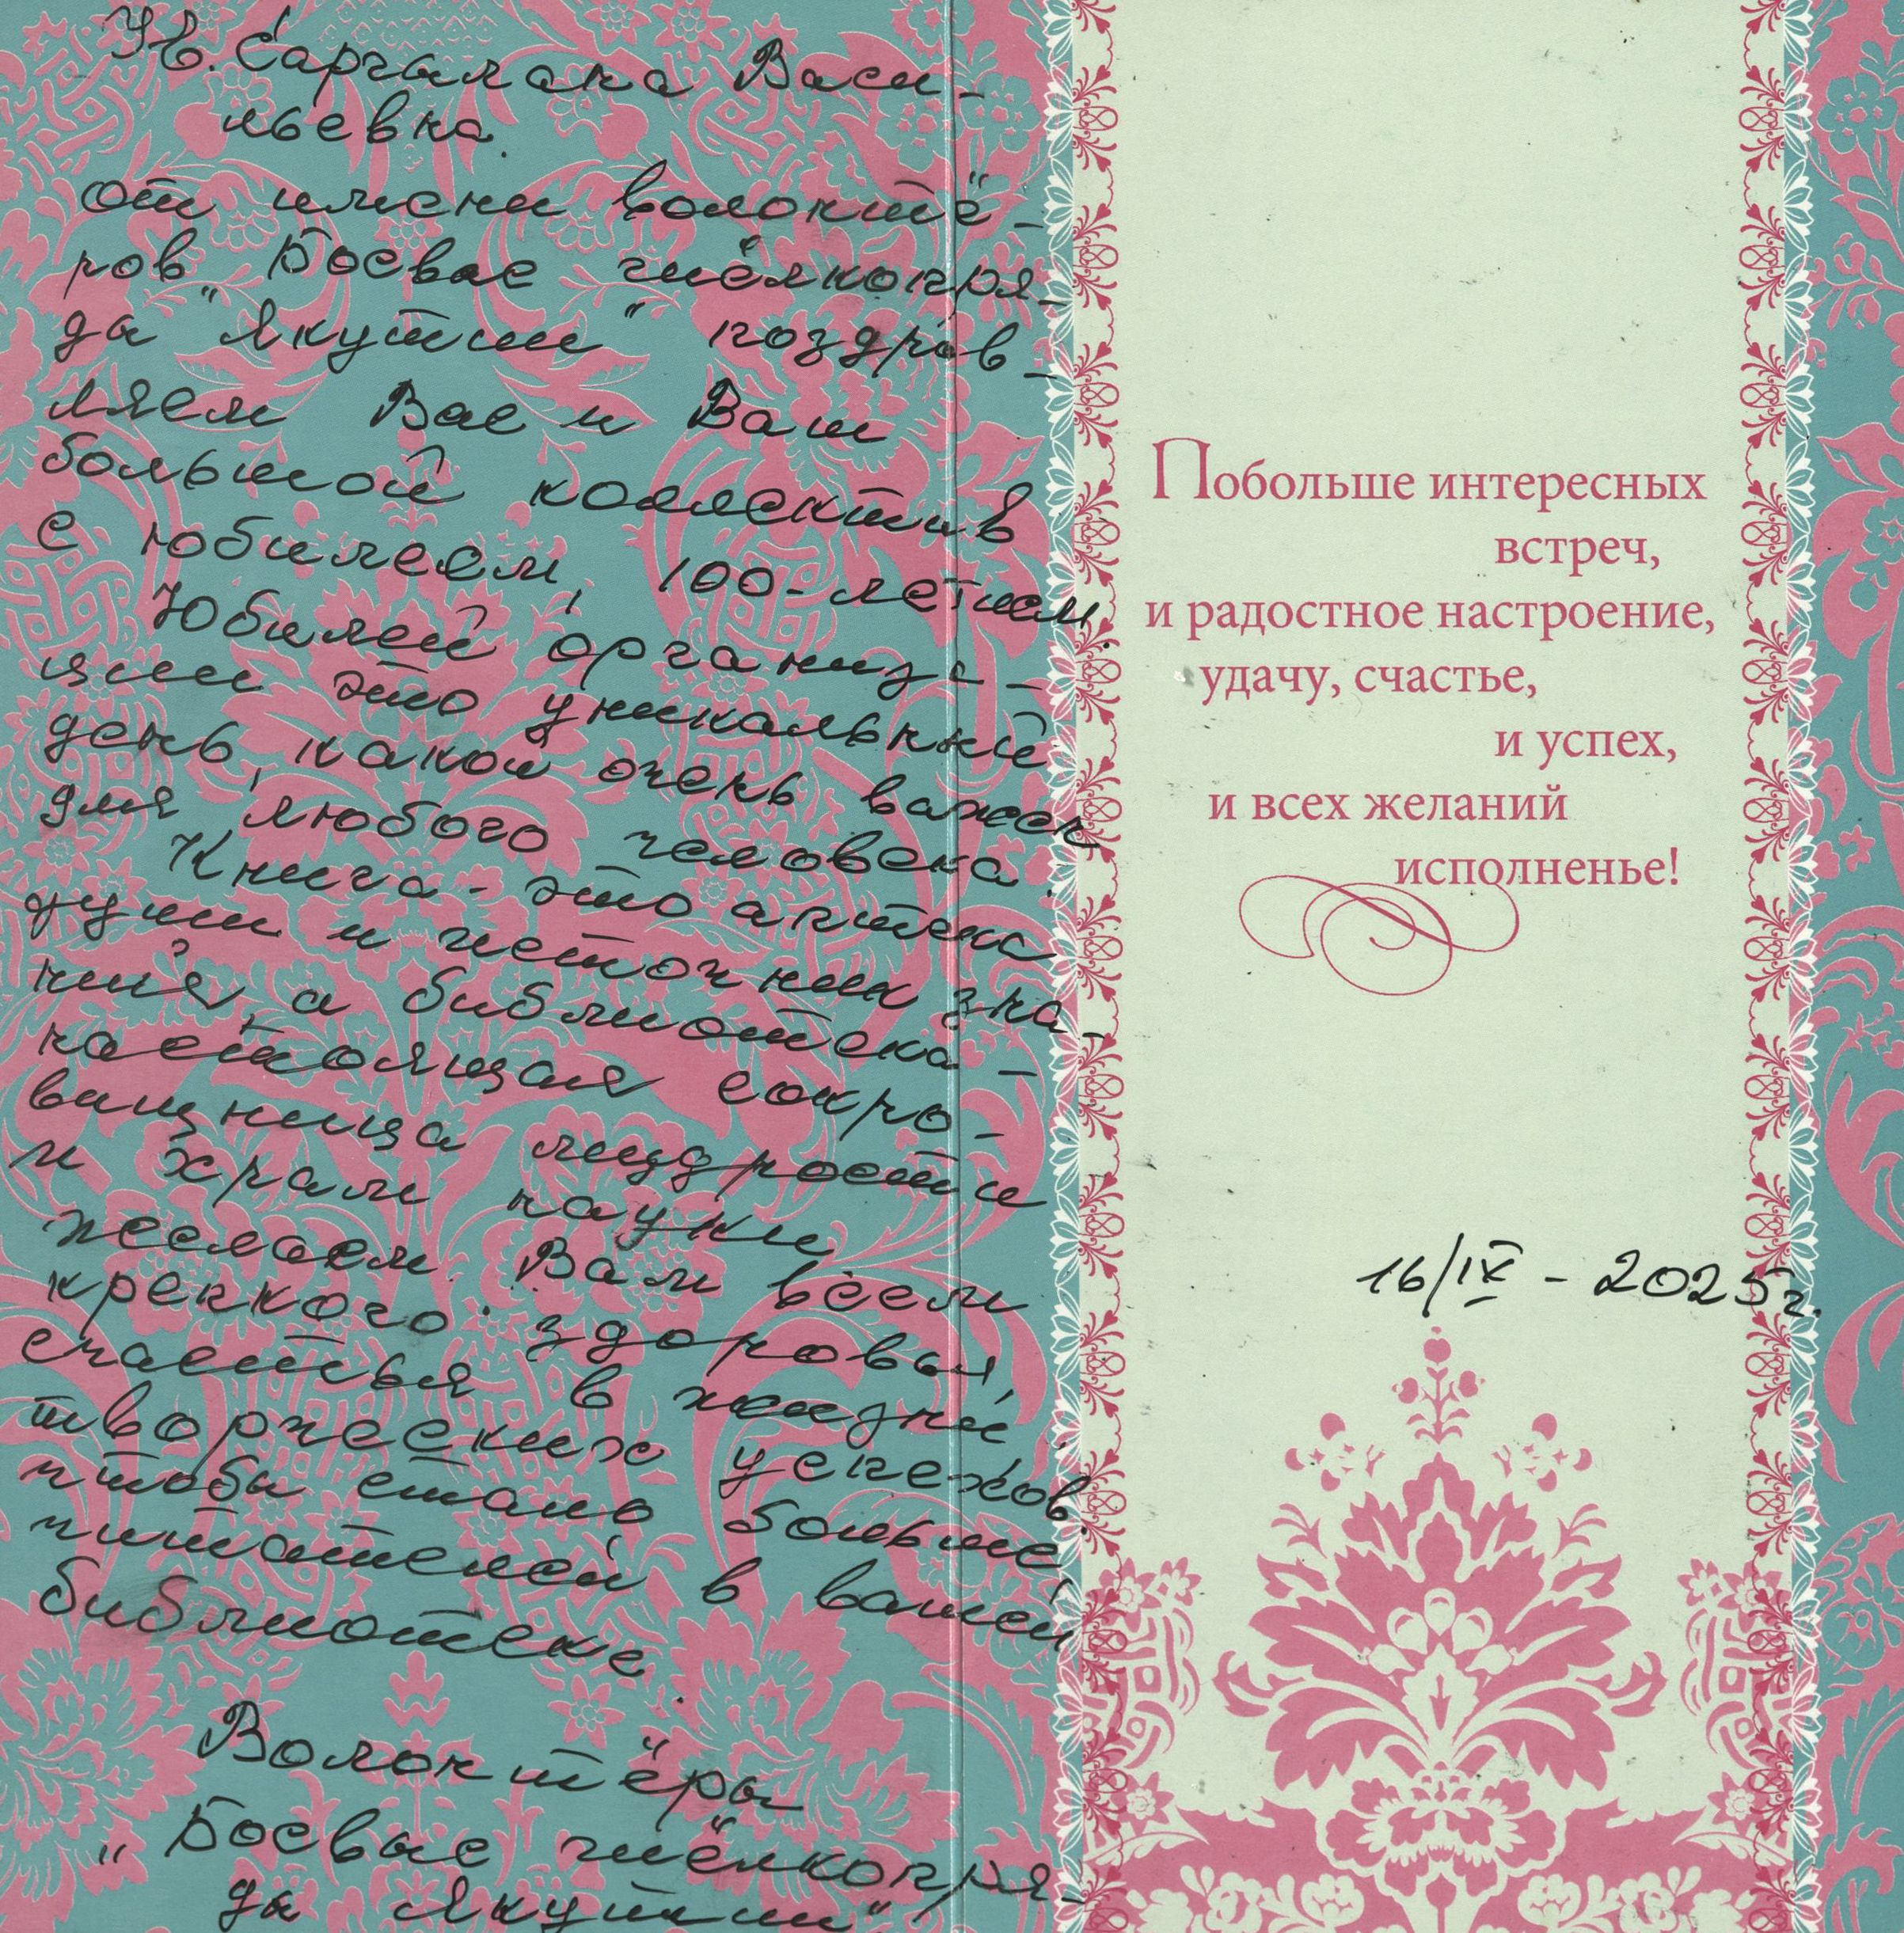 Ув. Саргылана Васи-
льевна.
От имени волонтё-
ров "Боевые пчёлкопря-
да Якутии" поздрав-
ляем Вас и Ваш
большой коллектив
с юбилеем, 100-летием.
Юбилей организа-
ции это уникальный
день, какой очень важен
для любого человека.
Книга - это аптека
души и источник зна-
ний, а библиотека -
настоящая сокро-
вищница мудрости
и храм науки
желаем Вам всем
крепкого здоровья,
счастья в жизни
творческих успехов.
чтобы стало больше
читателей в вашей
библиотеке.
Волонтёры
"Боевые пчёлкопря-
да Якутии"
Побольше интересных
встреч,
и радостное настроение,
удачу, счастье,
и успех,
и всех желаний
исполненье!
16/IX - 2025г.